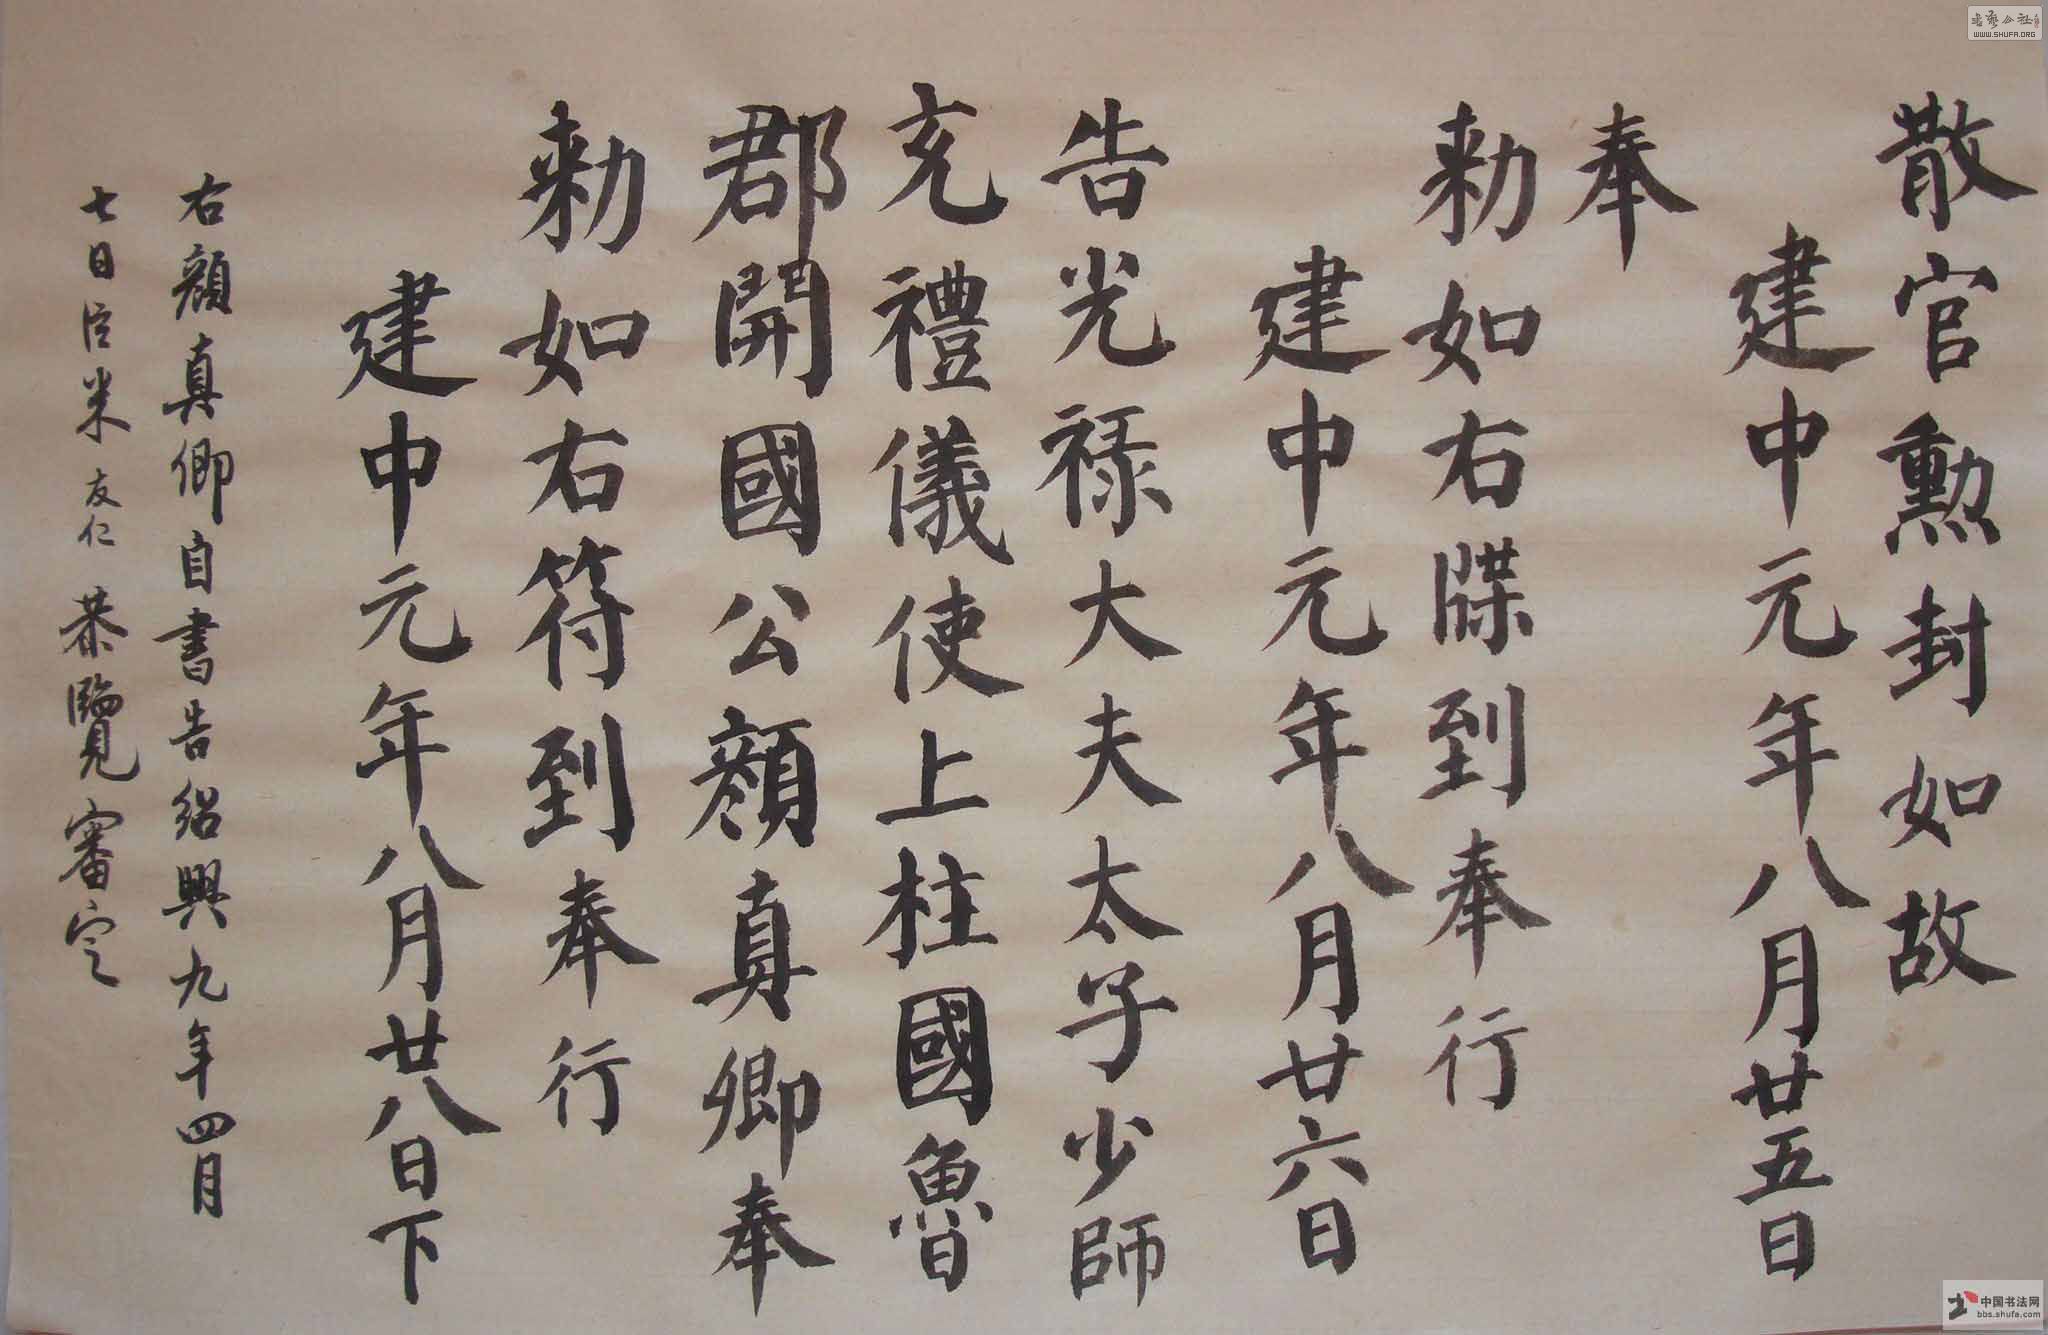 散官勲封如故
建中元年八月廿五日
奉
勅如右牒到奉行
建中元年八月廿六日
告光禄大夫太子少師
充禮儀使上柱國魯
郡開國公顔真卿奉
勅如右符到奉行
建中元年八月廿八日下
右顔真卿自書告紹興九年四月
七日臣米友仁恭臨覽審定
WWW.SHUFA.ORG
中国书法网
bbs.shufa.com